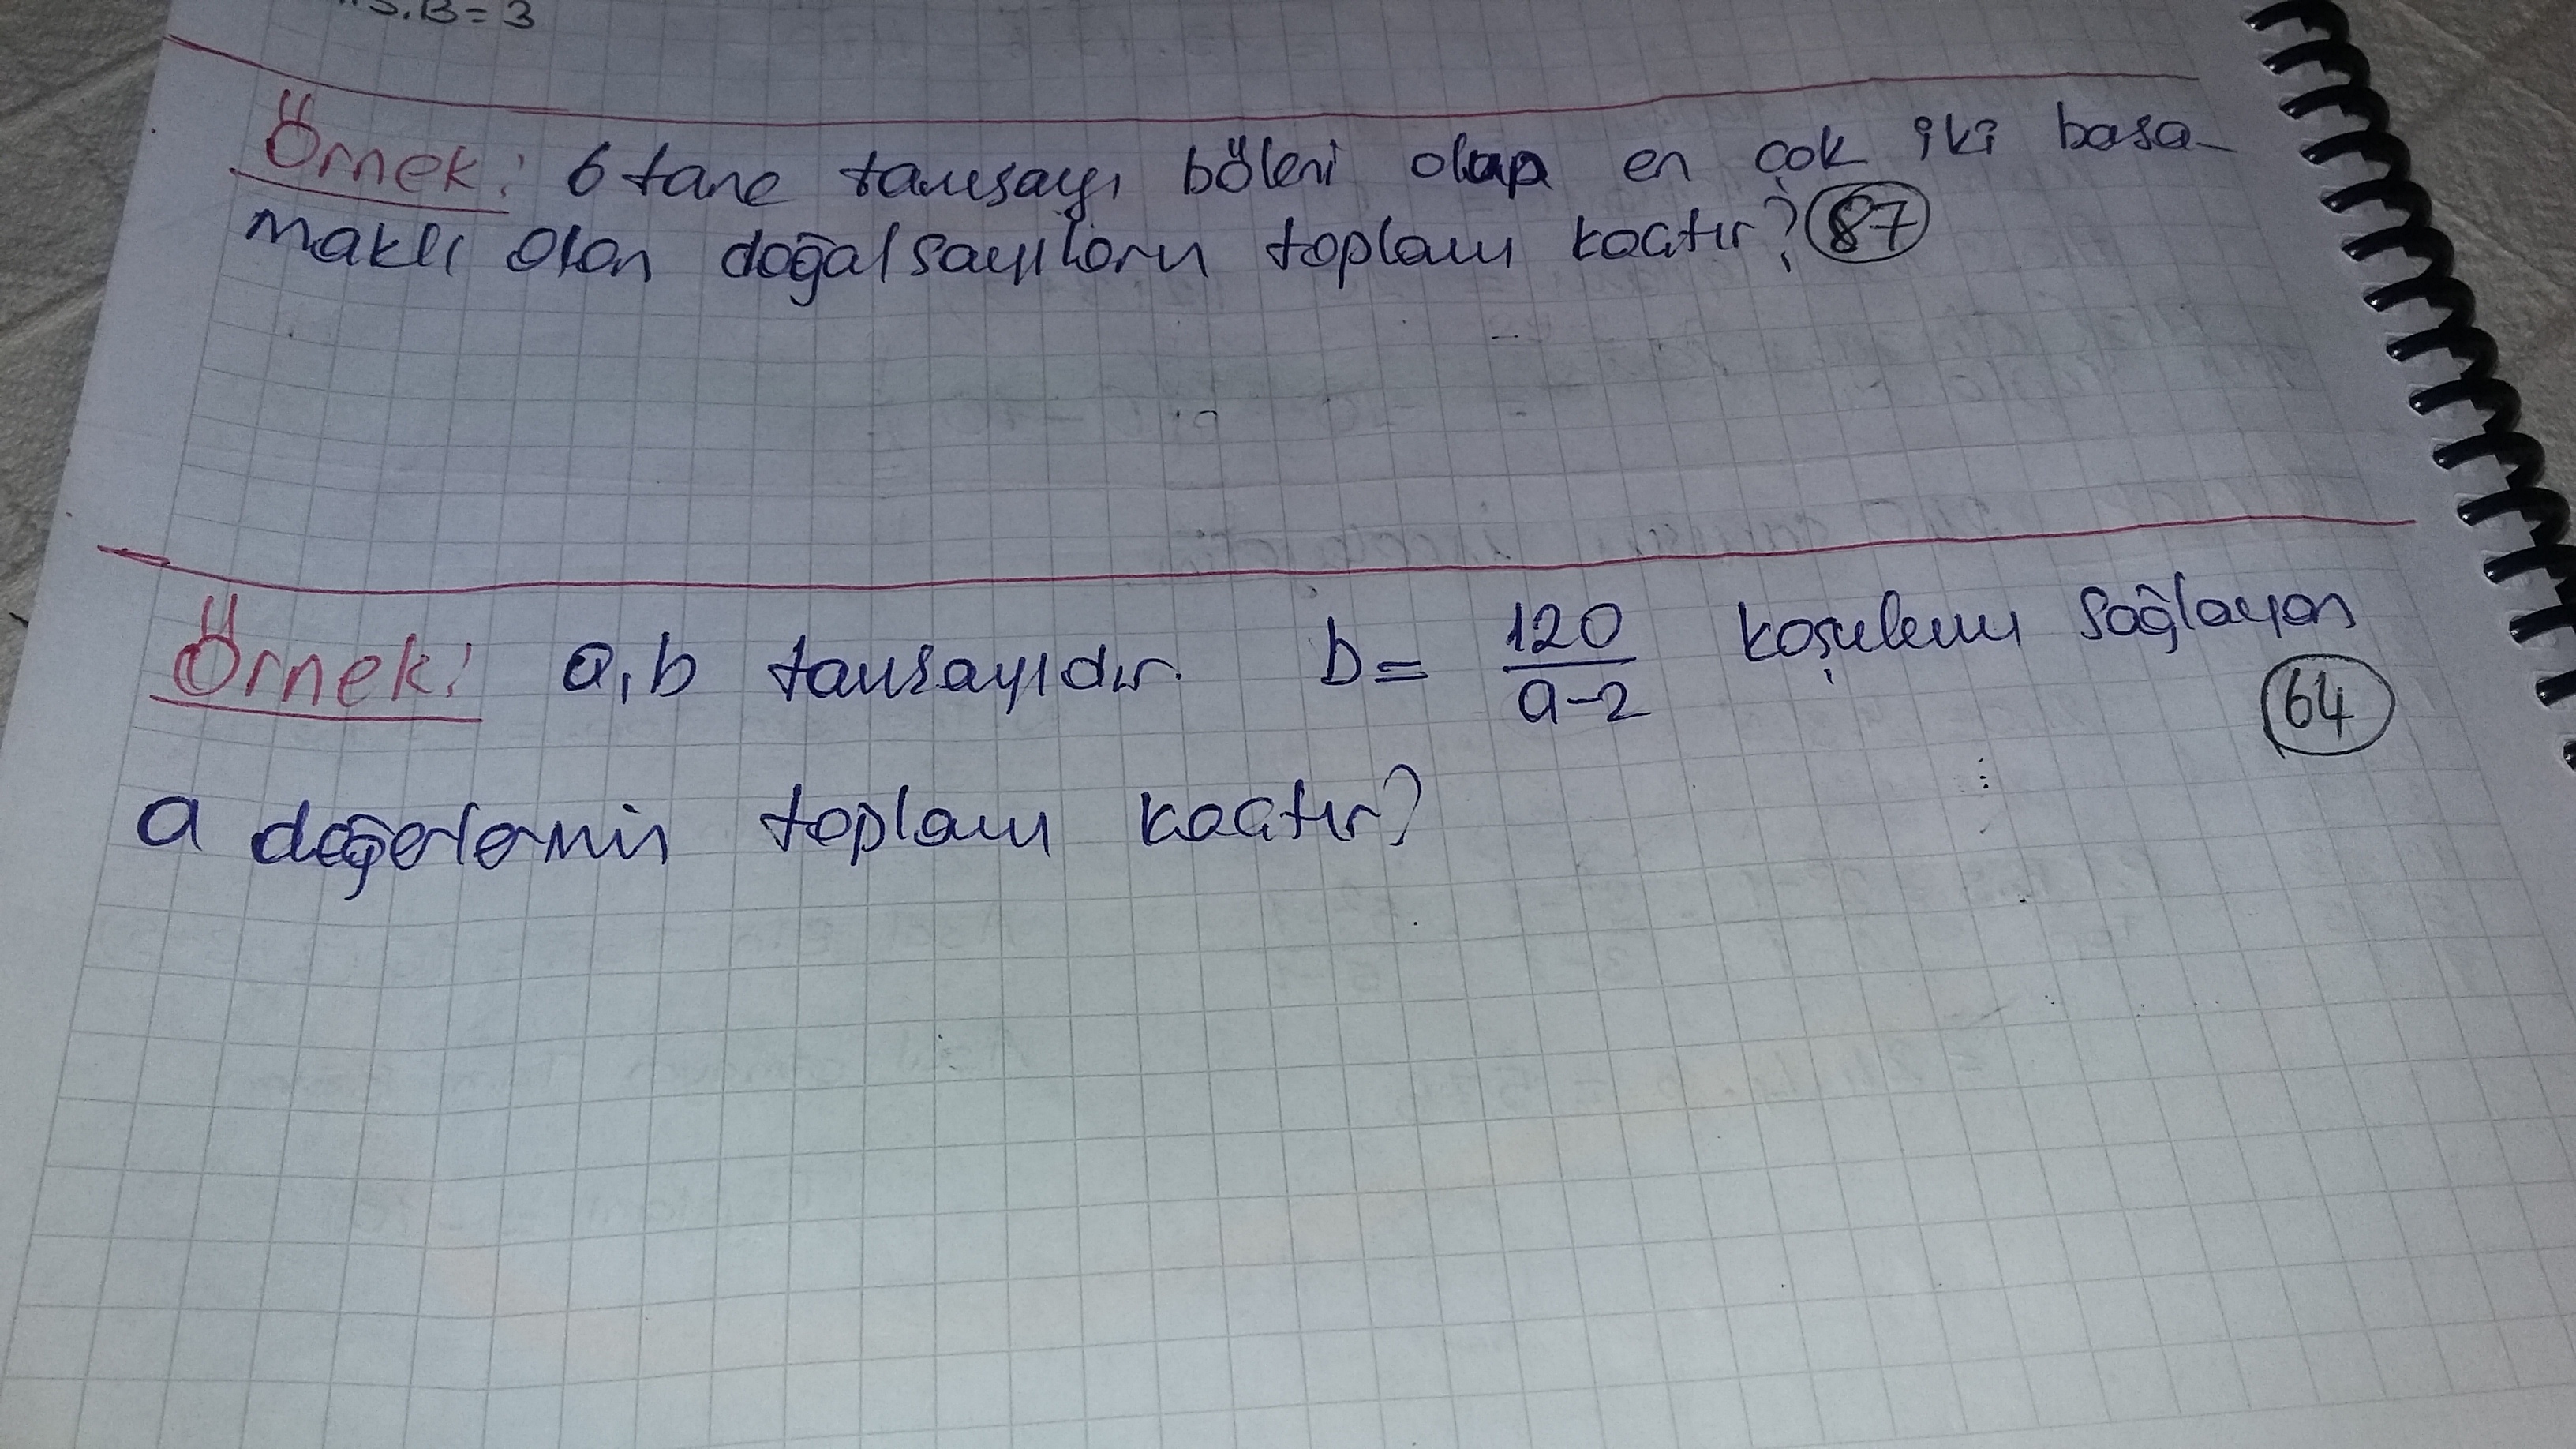 .S.B=3
Örnek: 6 tane tamsayı böleni olup en çok iki basa-
maklı olan doğal sayıların toplamı kaçtır? 87
Örnek: a,b tamsayıdır. b= 120/a-2 koşulunu sağlayan
64
a değerlerinin toplamı kaçtır?